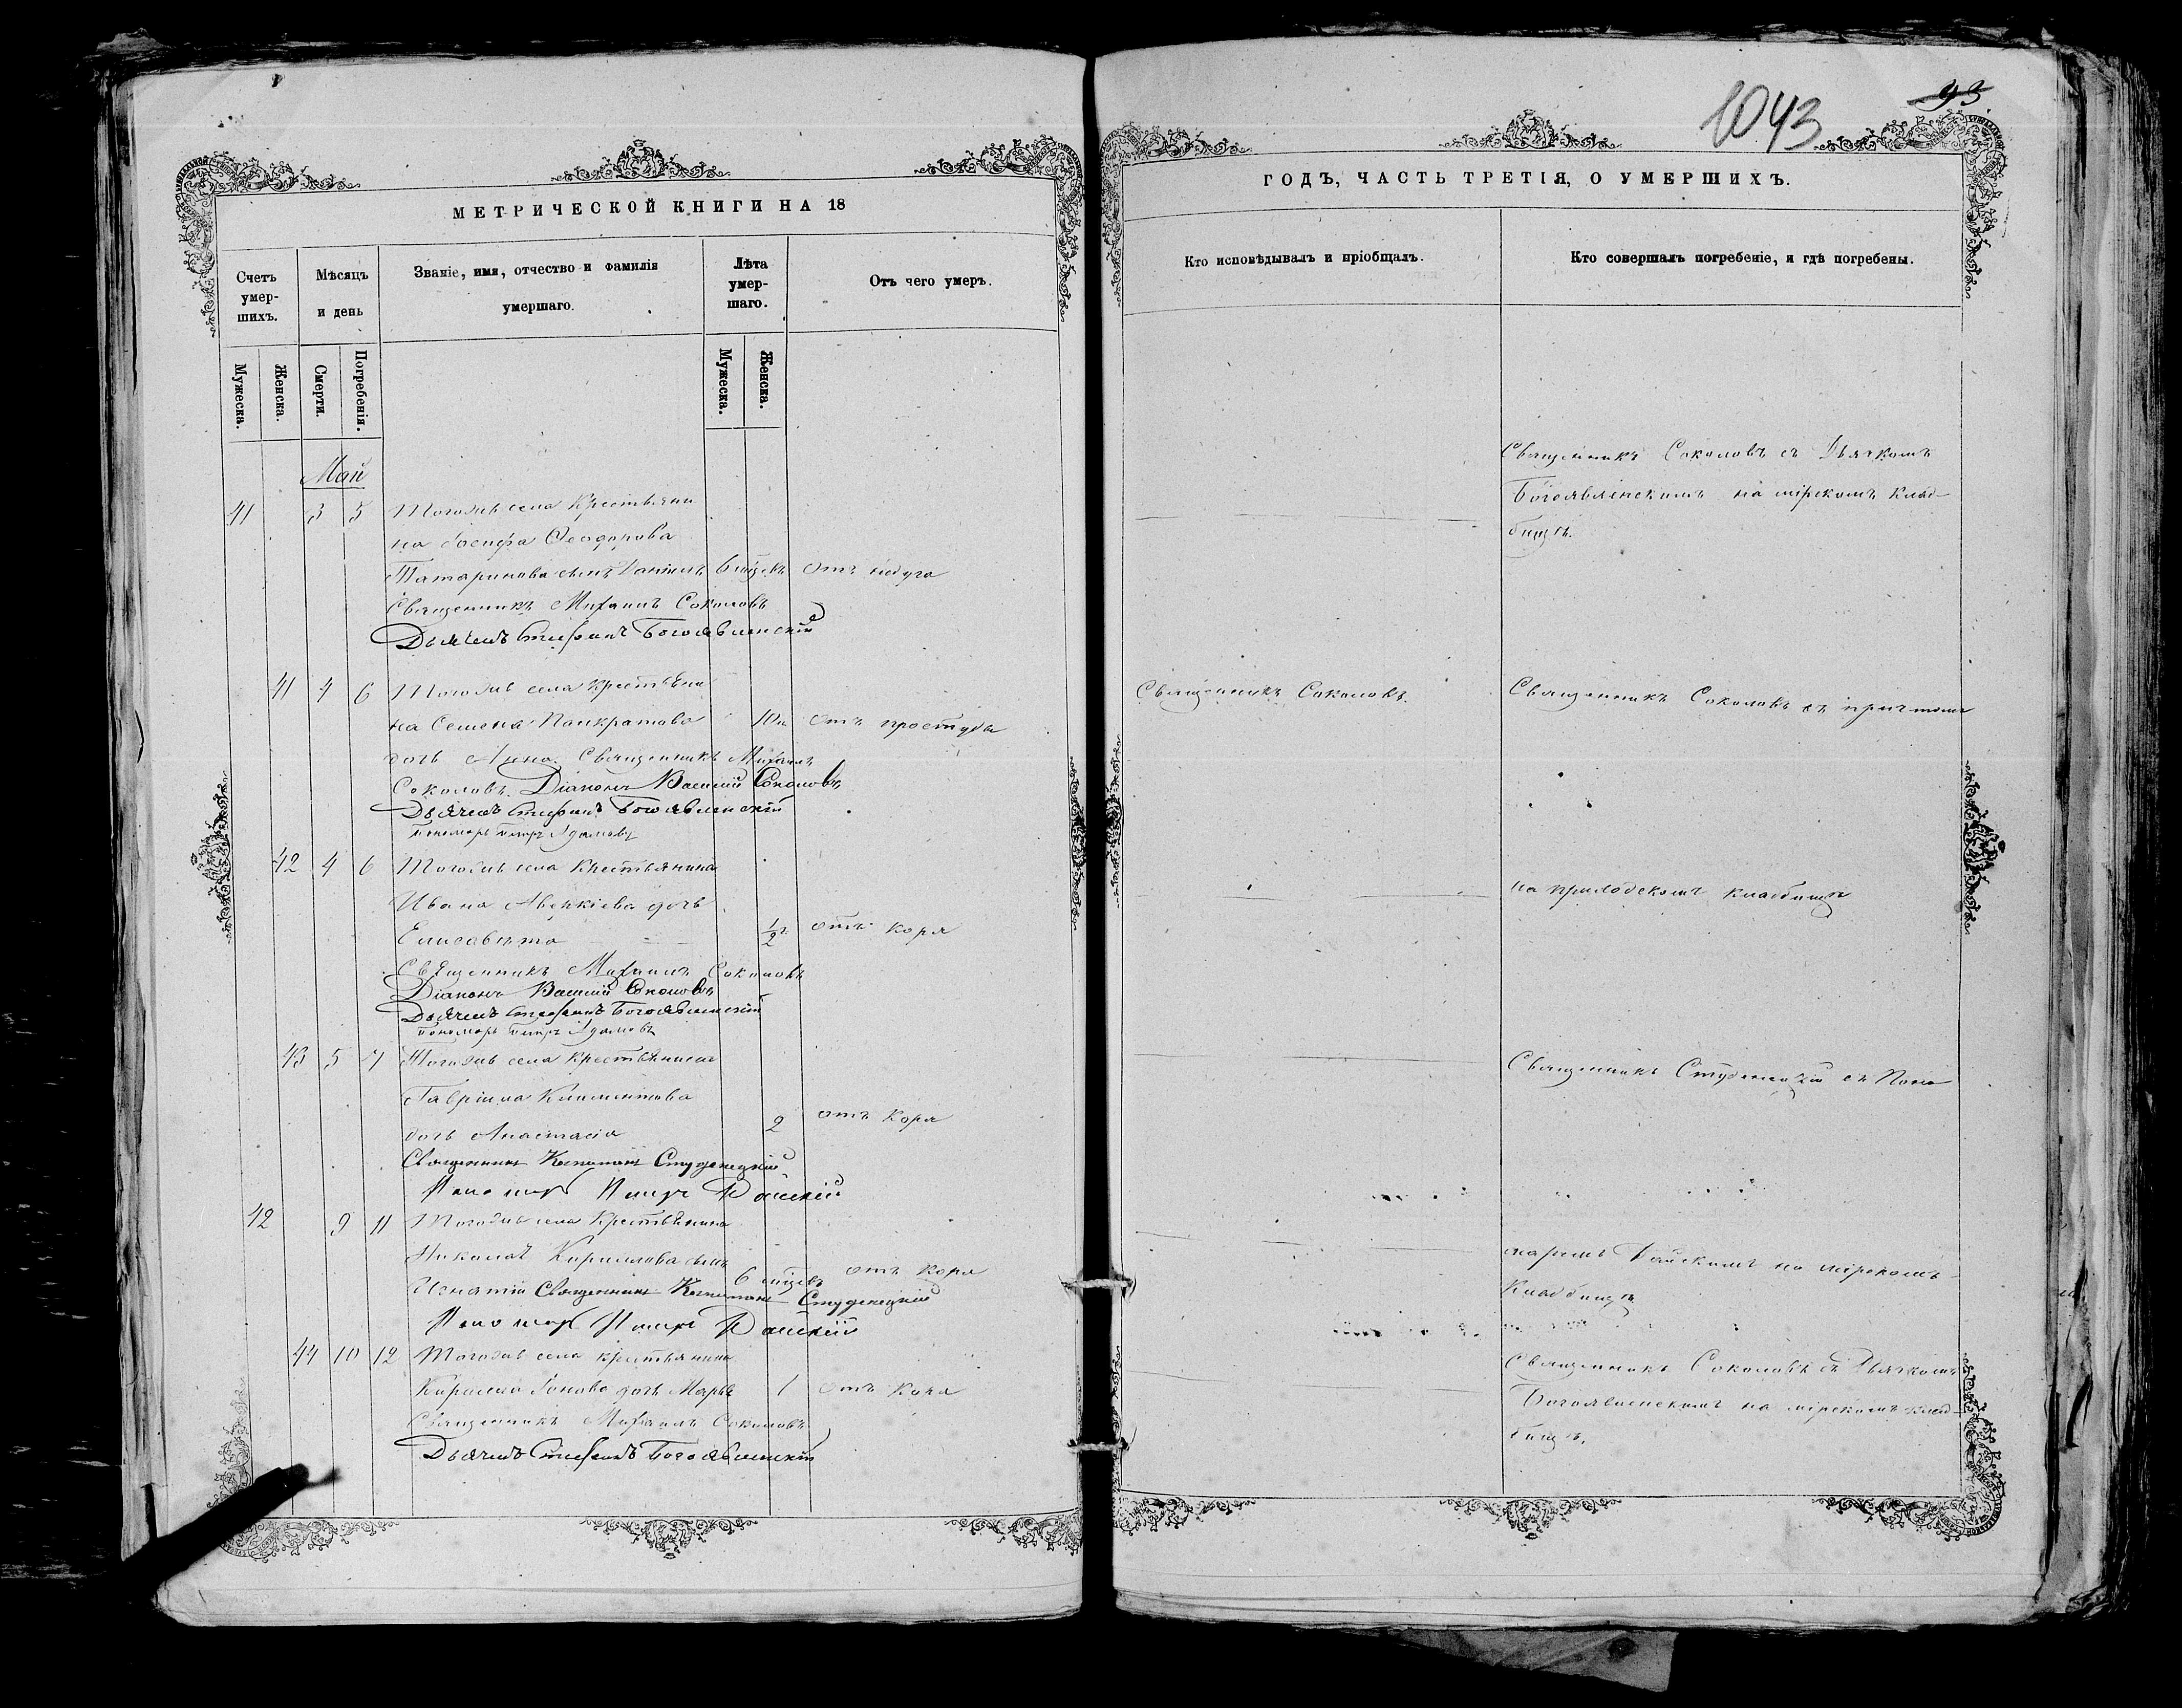 МЕТРИЧЕСКОЙ КНИГИ НА 18
Счетъ умер-шихъ.
Мѣсяцъ и день
Званіе, имя, отчество и фамилія умершаго.
Лѣта умер-шаго.
Отъ чего умеръ.
Мужеска.
Женска.
Смерти.
Погребенія.
Мужеска.
Женска.
Май
41 3 5 Тогожъ села Крестьяни
на Іосифа Ѳеодорова
Татаринова сынъ Даніилъ 6 мѣс. отъ недуга
Священникъ Михаилъ Соколовъ
Дьячекъ Стефанъ Богоявленскій
41 4 6 Тогожъ села Крестьяни
на Семена Панкратова 10 отъ простуды
дочь Анна. Священникъ Михаилъ
Соколовъ. Діаконъ Василій Соколовъ
Дьячекъ Стефанъ Богоявленскій
пономарь Петръ Адамовъ
42 4 6 Тогожъ села Крестьянина
Ивана Аверкіева дочь
Елисавета ½ отъ коря
Священникъ Михаилъ Соколовъ
Діаконъ Василій Соколовъ
Дьячекъ Стефанъ Богоявленскій
пономарь Петръ Адамовъ
43 5 7 Тогожъ села Крестьянина
Гавріила Климентова
дочь Анастасія 2 отъ коря
Священникъ Капитонъ Студенецкій
Пономарь Петръ Райскій
42 9 11 Тогожъ села Крестьянина
Николая Кириллова сынъ
Игнатій 6 мѣсцъ отъ коря
Священникъ Капитонъ Студенецкій
Пономарь Петръ Райскій
44 10 12 Тогожъ села крестьянина
Кирилла Іонова дочь Марья 1 отъ коря
Священникъ Михаилъ Соколовъ
Дьячекъ Стефанъ Богоявленскій
1043
93
ГОДЪ, ЧАСТЬ ТРЕТІЯ, О УМЕРШИХЪ.
Кто исповѣдывалъ и пріобщалъ.
Кто совершалъ погребеніе, и гдѣ погребены.
Священникъ Соколовъ съ Дьячкомъ
Богоявленскимъ на мірскомъ клад-
бищѣ.
Священникъ Соколовъ.
Священникъ Соколовъ съ причтомъ
на приходскомъ кладбищѣ
Священникъ Студенецкій съ Поно
маремъ Райскимъ на мірскомъ
Кладбищѣ
Священникъ Соколовъ съ Дьячкомъ
Богоявленскимъ на мірскомъ клад-
бищѣ.